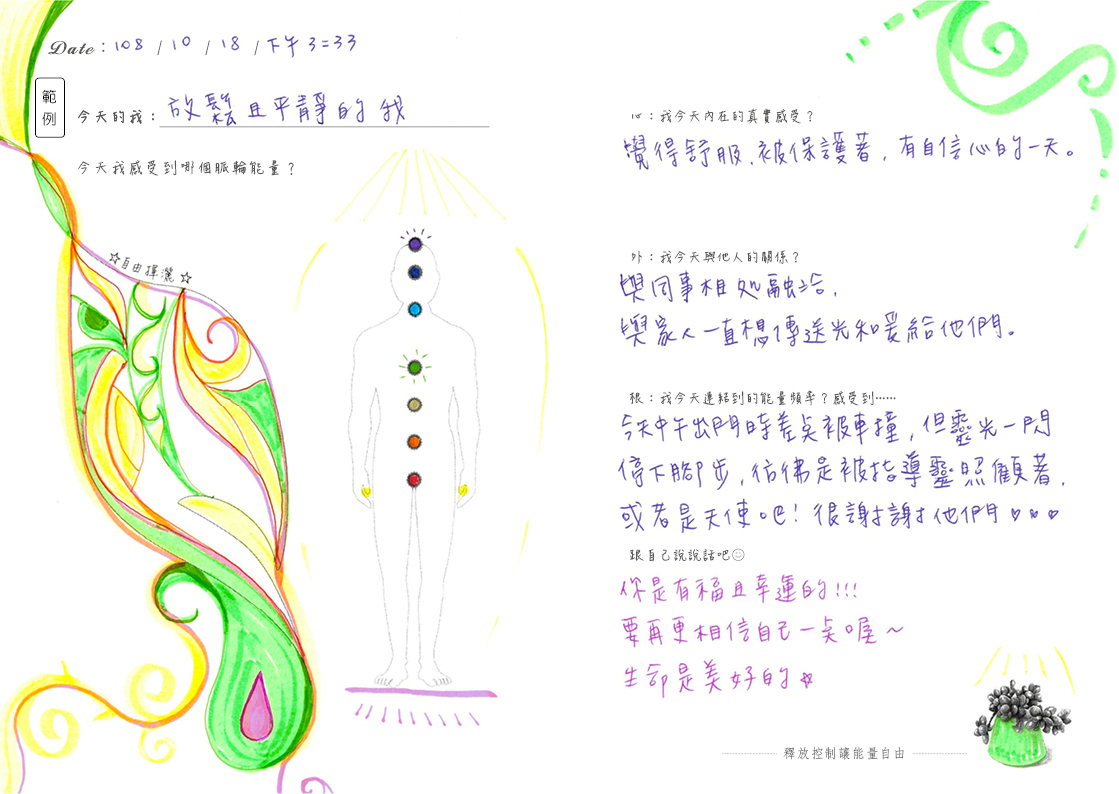 Date：108 / 10 / 18 / 下午 3:33
範例
今天的我：放鬆且平靜的我
今天我感受到哪個脈輪能量？
☆自由揮灑☆
心：我今天內在的真實感受？
覺得舒服、被保護著，有自信心的一天。
外：我今天與他人的關係？
與同事相処融洽，
與家人一直想傳送光和愛給他們。
根：我今天連結到的能量頻率？感受到……
今天中午出門時差点被車撞，但靈光一閃
停下腳步，彷彿是被指導靈照顧著，
或者是天使吧！很謝謝他們♡♡♡
跟自己說說話吧☺
你是有福且幸運的!!!
要再更相信自己一点喔～
生命是美好的☆
釋放控制讓能量自由